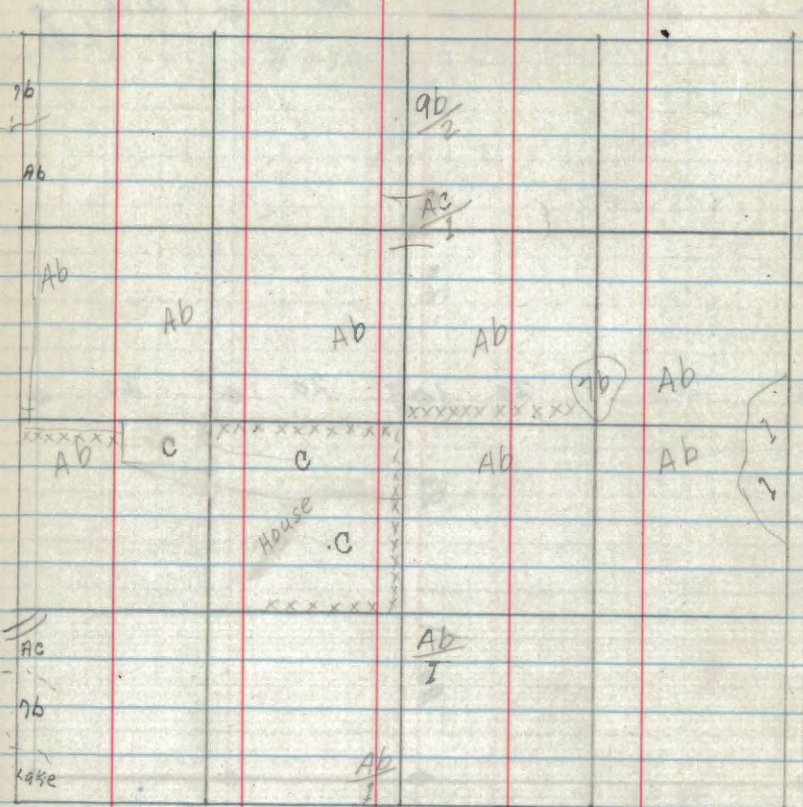 7b
9b/2
Ab
AC/1
Ab
Ab
Ab
Ab
7b
Ab
xxxxxx x x x xx
xxxxxxx
xxx x x x x x x x
Ab
C
C
Ab
Ab
1
1
House
.C
x x x x x x
AC
Ab/I
7b
Lake
Ab/1